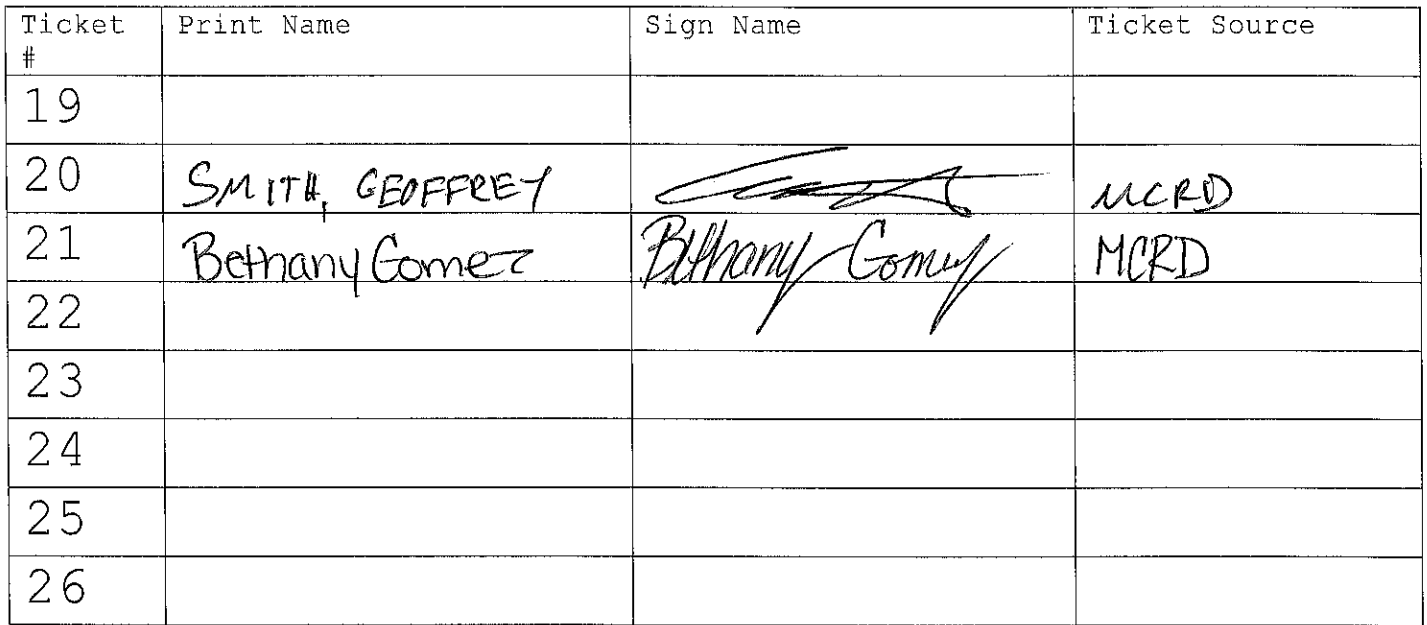 Ticket # Print Name Sign Name Ticket Source
19
20 SMITH, GEOFFREY MCRD
21 Bethany Gomez Bethany Gomez MCRD
22
23
24
25
26